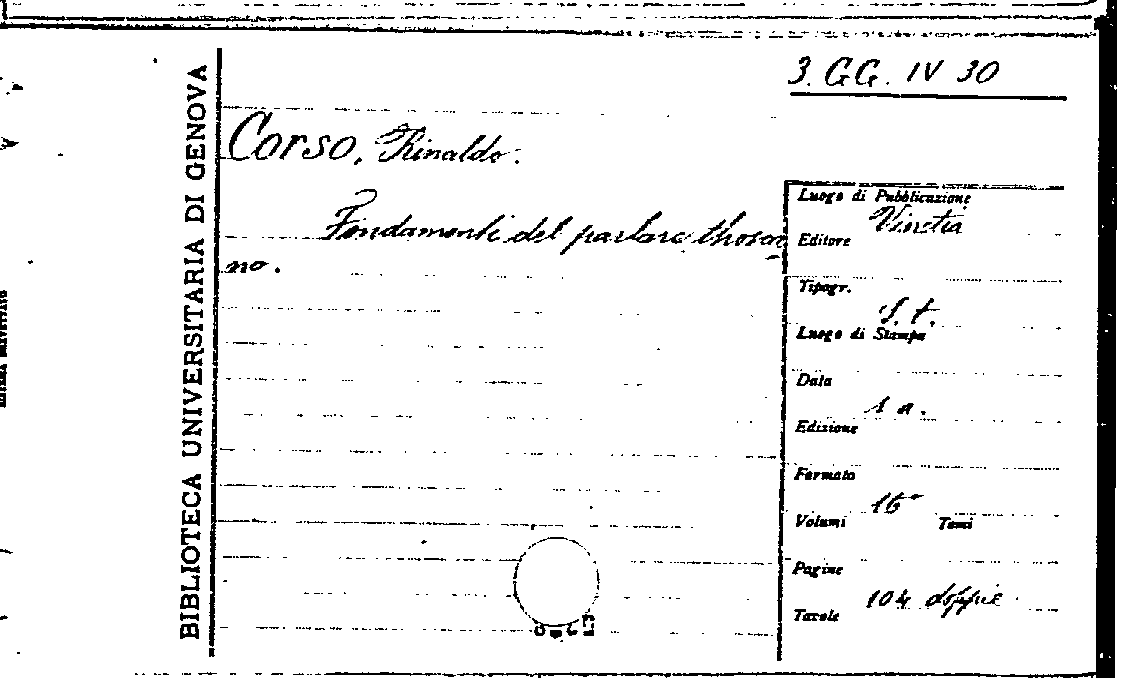 3. GG. IV 30
BIBLIOTECA UNIVERSITARIA DI GENOVA
Corso, Rinaldo.
Fondamenti del parlare thosca-
no.
Luogo di Pubblicazione
Vinetia
Editore
Tipogr.
s. t.
Luogo di Stampa
Data
s. a.
Edizione
Formato
16°
Volumi Tomi
Pagine
104 doppie
Tavole